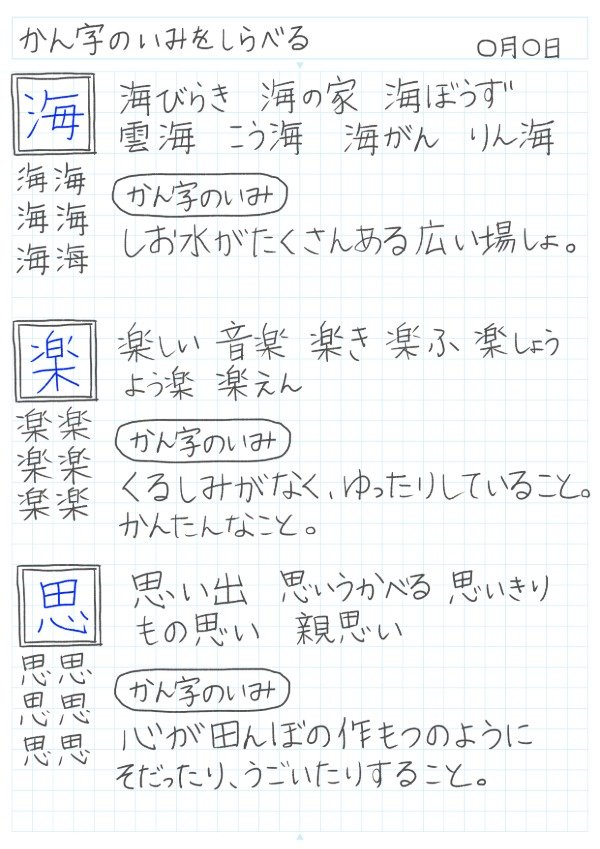 かん字のいみをしらべる
〇月〇日
海
海びらき 海の家 海ぼうず
雲海 こう海 海がん りん海
海海
海海
海海
かん字のいみ
しお水がたくさんある広い場しょ。
楽
楽しい 音楽 楽き 楽ふ 楽しょう
よう楽 楽えん
楽楽
楽楽
楽楽
かん字のいみ
くるしみがなく、ゆったりしていること。
かんたんなこと。
思
思い出 思いうかべる 思いきり
もの思い 親思い
思思
思思
思思
かん字のいみ
心が田んぼの作もつのように
そだったり、うごいたりすること。